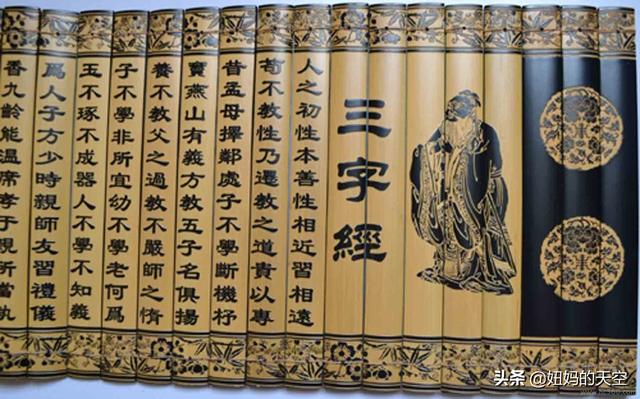 三字經
人之初性本善性相近習相遠
苟不教性乃遷教之道貴以專
昔孟母擇鄰處子不學斷機杼
竇燕山有義方教五子名俱揚
養不教父之過教不嚴師之惰
子不學非所宜幼不學老何爲
玉不琢不成器人不學不知義
爲人子方少時親師友習禮儀
香九齡能溫席孝于親所當執
头条 @妞妈的天空